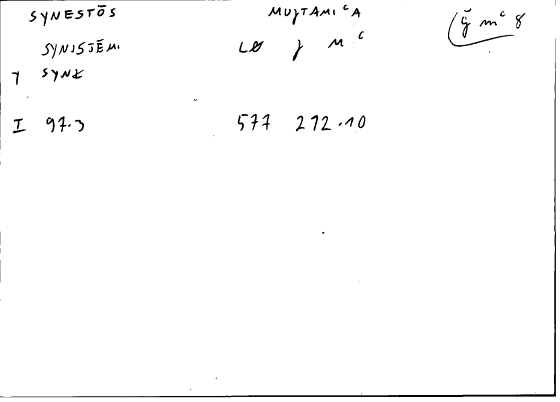 SYNESTŌS MUJTAMIᶜA ǧ mᶜ 8
SYNISTĒMI LØ J Mᶜ
7 SYNŁ
I 97.3 577 272.10